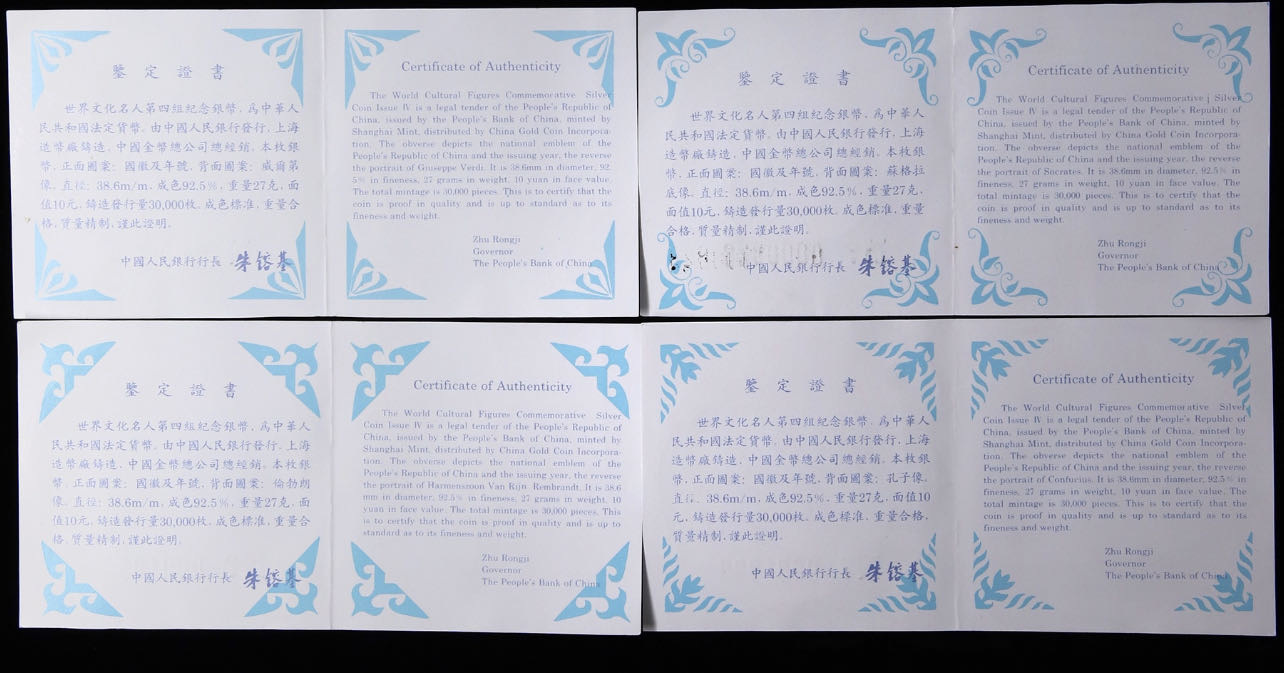 鑒定證書
世界文化名人第四組紀念銀幣，爲中華人
民共和國法定貨幣。由中國人民銀行發行，上海
造幣廠鑄造，中國金幣總公司總經銷。本枚銀
幣，正面圖案：國徽及年號，背面圖案：威爾第
像。直徑：38.6m/m，成色92.5%，重量27克，面
值10元，鑄造發行量30,000枚。成色標准，重量合
格，質量精制，謹此證明。
中國人民銀行行長 朱鎔基
Certificate of Authenticity
The World Cultural Figures Commemorative Silver
Coin Issue Ⅳ is a legal tender of the People's Republic of
China, issued by the People's Bank of China, minted by
Shanghai Mint, distributed by China Gold Coin Incorpora-
tion. The obverse depicts the national emblem of the
People's Republic of China and the issuing year, the reverse
the portrait of Giuseppe Verdi. It is 38.6mm in diameter, 92.
5% in fineness, 27 grams in weight, 10 yuan in face value.
The total mintage is 30,000 pieces. This is to certify that the
coin is proof in quality and is up to standard as to its
fineness and weight.
Zhu Rongji
Governor
The People's Bank of China
鑒定證書
世界文化名人第四組紀念銀幣，爲中華人
民共和國法定貨幣。由中國人民銀行發行，上海
造幣廠鑄造，中國金幣總公司總經銷。本枚銀
幣，正面圖案：國徽及年號，背面圖案：蘇格拉
底像。直徑：38.6m/m，成色92.5%，重量27克，
面值10元，鑄造發行量30,000枚。成色標准，重量
合格，質量精制，謹此證明。
中國人民銀行行長 朱鎔基
Certificate of Authenticity
The World Cultural Figures Commemorative Silver
Coin Issue Ⅳ is a legal tender of the People's Republic of
China, issued by the People's Bank of China, minted by
Shanghai Mint, distributed by China Gold Coin Incorpora-
tion. The obverse depicts the national emblem of the
People's Republic of China and the issuing year, the reverse
the portrait of Socrates. It is 38.6mm in diameter, 92.5% in
fineness, 27 grams in weight, 10 yuan in face value. The
total mintage is 30,000 pieces. This is to certify that the
coin is proof in quality and is up to standard as to its
fineness and weight.
Zhu Rongji
Governor
The People's Bank of China
鑒定證書
世界文化名人第四組紀念銀幣，爲中華人
民共和國法定貨幣。由中國人民銀行發行，上海
造幣廠鑄造，中國金幣總公司總經銷。本枚銀
幣，正面圖案：國徽及年號，背面圖案：倫勃朗
像。直徑：38.6m/m，成色92.5%，重量27克，面
值10元，鑄造發行量30,000枚。成色標准，重量合
格，質量精制，謹此證明。
中國人民銀行行長 朱鎔基
Certificate of Authenticity
The World Cultural Figures Commemorative Silver
Coin Issue Ⅳ is a legal tender of the People's Republic of
China, issued by the People's Bank of China, minted by
Shanghai Mint, distributed by China Gold Coin Incorpora-
tion. The obverse depicts the national emblem of the
People's Republic of China and the issuing year, the reverse
the portrait of Harmenszoon Van Rijn. Rembrandt. It is 38.6
mm in diameter, 92.5% in fineness, 27 grams in weight, 10
yuan in face value. The total mintage is 30,000 pieces. This
is to certify that the coin is proof in quality and is up to
standard as to its fineness and weight.
Zhu Rongji
Governor
The People's Bank of China
鑒定證書
世界文化名人第四組紀念銀幣，爲中華人
民共和國法定貨幣。由中國人民銀行發行，上海
造幣廠鑄造，中國金幣總公司總經銷。本枚銀
幣，正面圖案：國徽及年號，背面圖案：孔子像。
直徑：38.6m/m，成色92.5%，重量27克，面值10
元，鑄造發行量30,000枚。成色標准，重量合格，
質量精制，謹此證明。
中國人民銀行行長 朱鎔基
Certificate of Authenticity
The World Cultural Figures Commemorative Silver
Coin Issue Ⅳ is a legal tender of the People's Republic of
China, issued by the People's Bank of China, minted by
Shanghai Mint, distributed by China Gold Coin Incorpora-
tion. The obverse depicts the national emblem of the
People's Republic of China and the issuing year, the reverse
the portrait of Confucius. It is 38.6mm in diameter, 92.5% in
fineness, 27 grams in weight, 10 yuan in face value. The
total mintage is 30,000 pieces. This is to certify that the
coin is proof in quality and is up to standard as to its
fineness and weight.
Zhu Rongji
Governor
The People's Bank of China